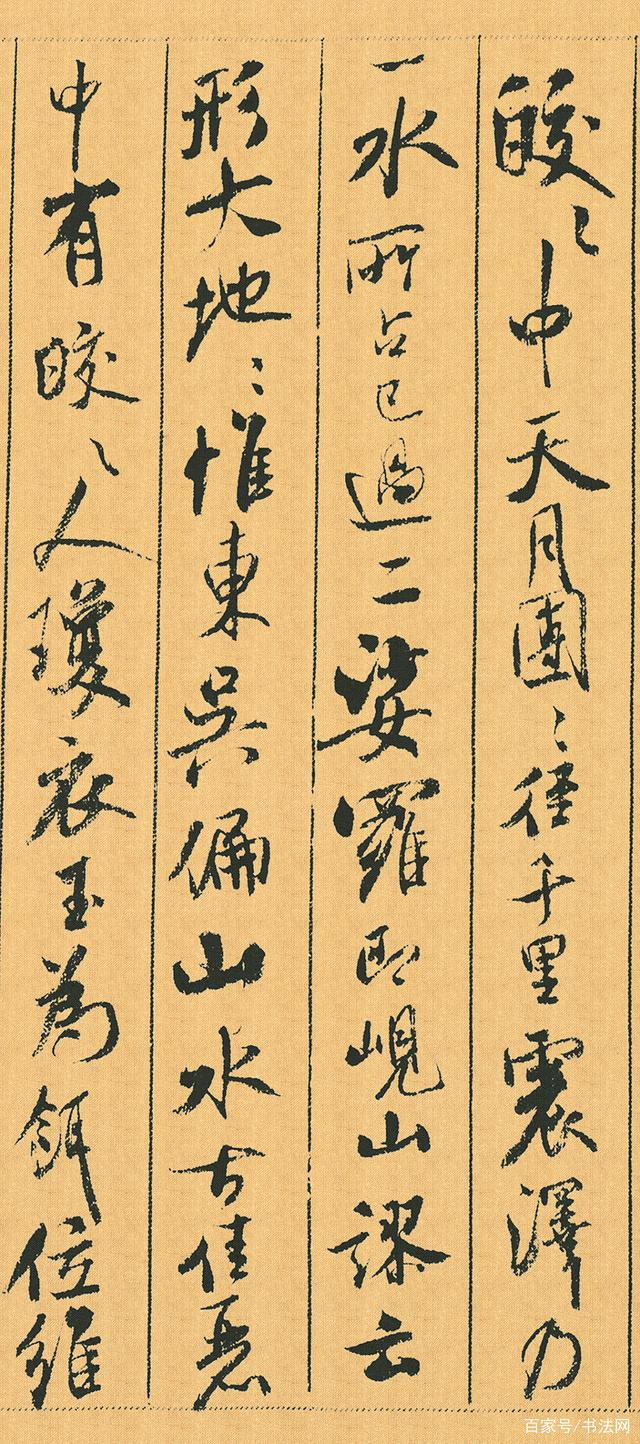 皎〻中天月團〻径千里震澤乃
一水所占已過二娑羅即峴山謬云
形大地〻惟東吳偏山水古佳麗
中有皎〻人瓊衣玉為餌位維
百家号/书法网